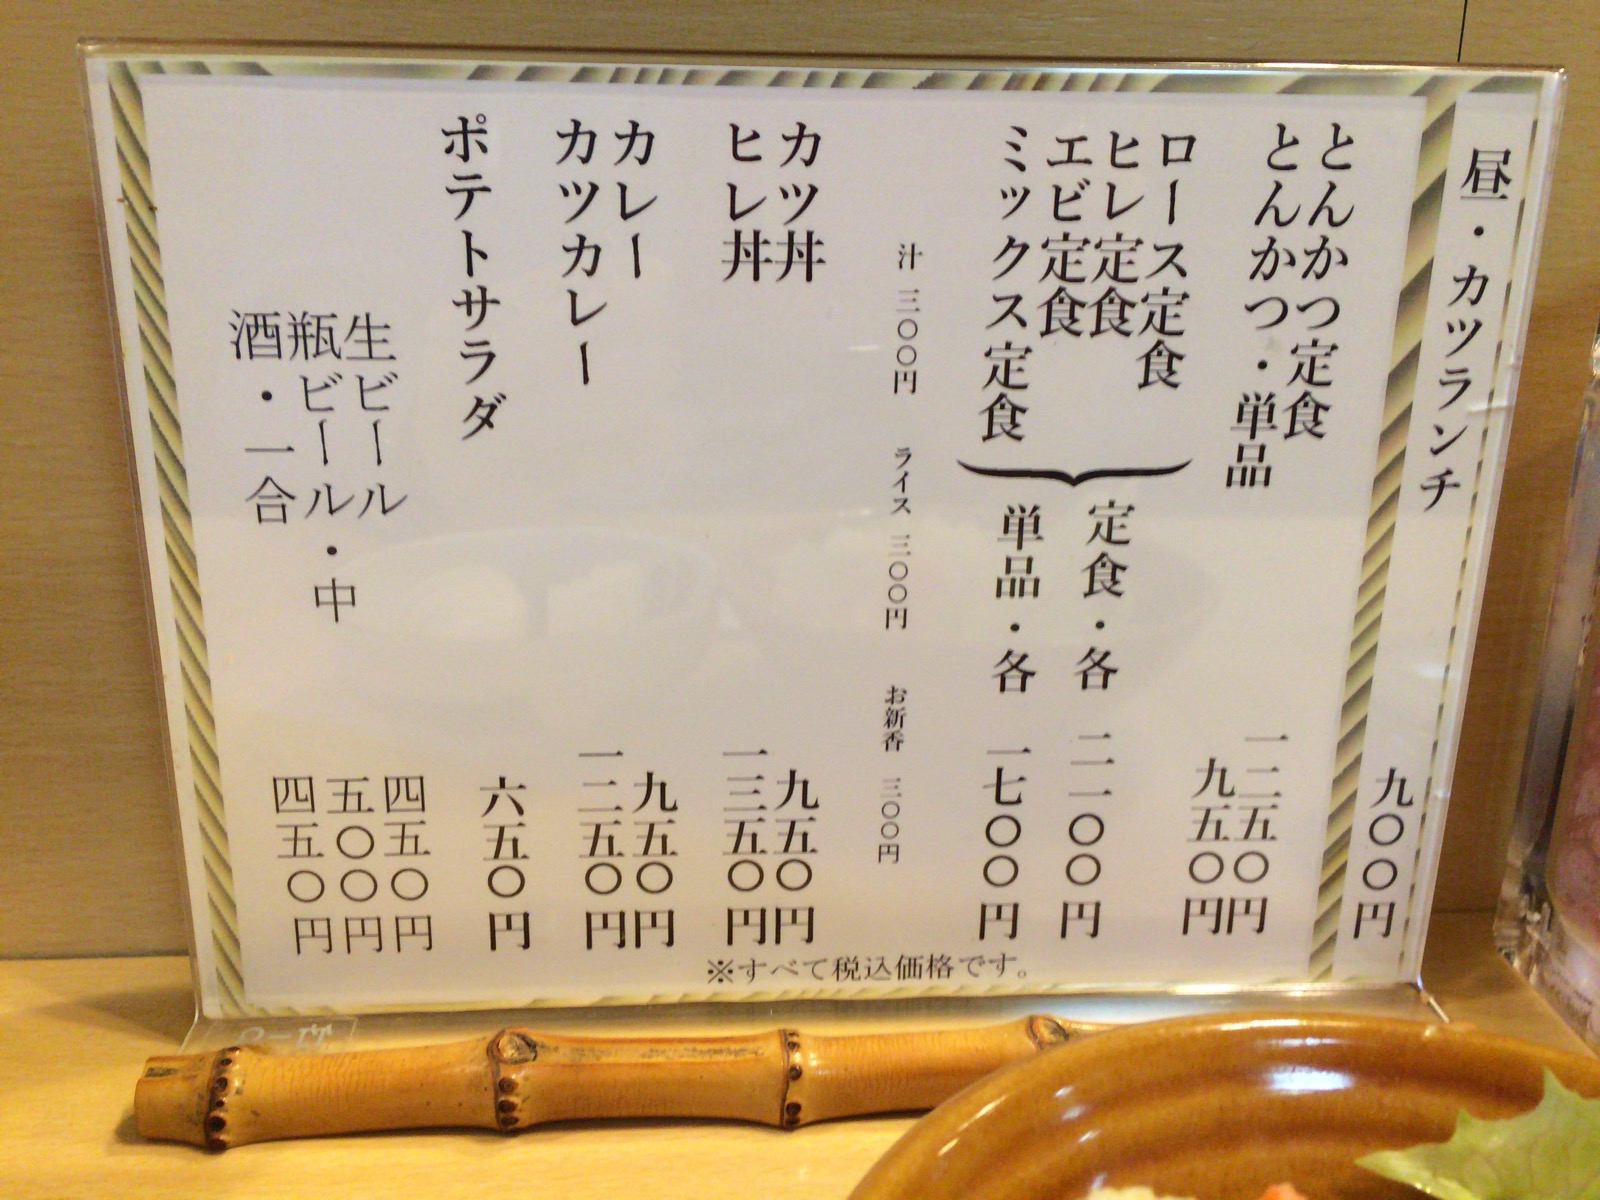 昼・カツランチ 九〇〇円
とんかつ定食 一二五〇円
とんかつ・単品 九五〇円
ロース定食
ヒレ定食
エビ定食
ミックス定食
定食・各 二一〇〇円
単品・各 一七〇〇円
汁 三〇〇円 ライス 三〇〇円 お新香 三〇〇円
カツ丼 九五〇円
ヒレ丼 一三五〇円
カレー 九五〇円
カツカレー 一二五〇円
ポテトサラダ 六五〇円
生ビール 四五〇円
瓶ビール・中 五〇〇円
酒・一合 四五〇円
※すべて税込価格です。